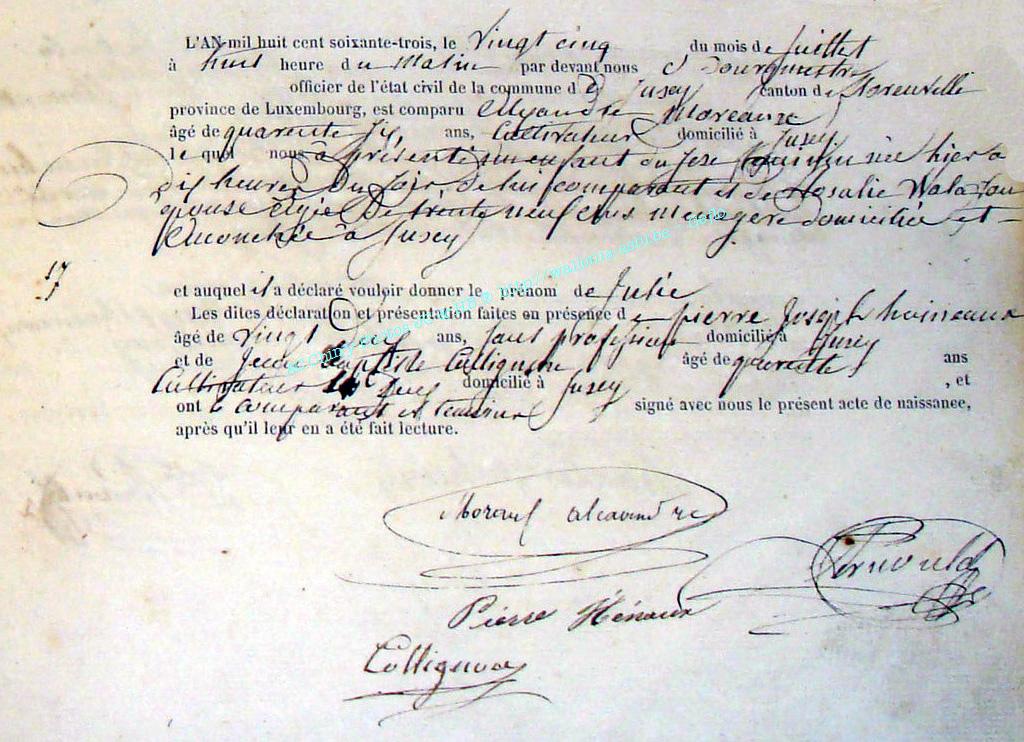 L'AN mil huit cent soixante-trois, le vingt cinq du mois de juillet
à huit heure du matin par devant nous Bourgmestre
officier de l'état civil de la commune de Jusey canton de
province de Luxembourg, est comparu Moreaux
âgé de quarente six ans, Cultivateur domicilié à Jusey
le quel nous a présenté un enfant du sexe née hier a
dix heures du soir de lui comparant et de Rosalie
épouse agée de trente neuf ans menagere domiciliée et
acouchée à Jusey
17
et auquel il a déclaré vouloir donner le prénom de Julie
Les dites déclaration et présentation faites en présence de pierre Joseph
âgé de vingt ans, sans profession domicilié à Jusey
et de Jean Baptiste Collignon âgé de quarente ans
Cultivateur domicilié à Jusey , et
ont le comparant et temoins signé avec nous le présent acte de naissance,
après qu'il leur en a été fait lecture.
Moreaux alexandre
Pierre Hénaux
Collignon